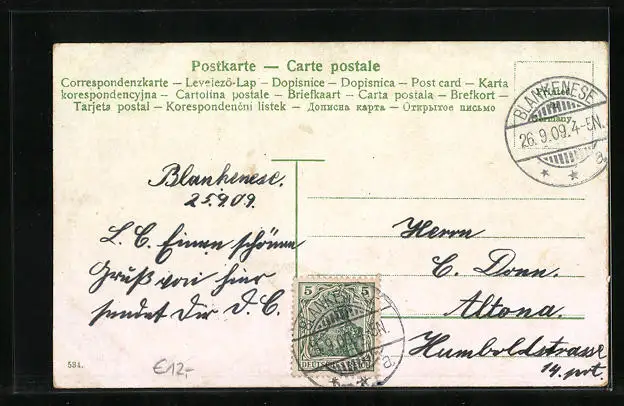 Postkarte — Carte postale
Correspondenzkarte – Levelező-Lap – Dopisnice – Dopisnica – Post card – Karta
korespondencyjna – Cartolina postale – Briefkaart – Carta postala – Brefkort –
Tarjeta postal – Korespondenční listek – Дописна карта – Открытое письмо
Printed
in
Germany.
BLANKENESE
26.9.09.4-5N.
* * a.
Blankenese.
25.9.09.
L. C. Einen schönen
Gruß von hier
sendet Dir D. C.
Herrn
C. Donn.
Altona.
Humboldstrasse
14. prt.
5 5
BLANKENESE
* * a.
584.
€12,-